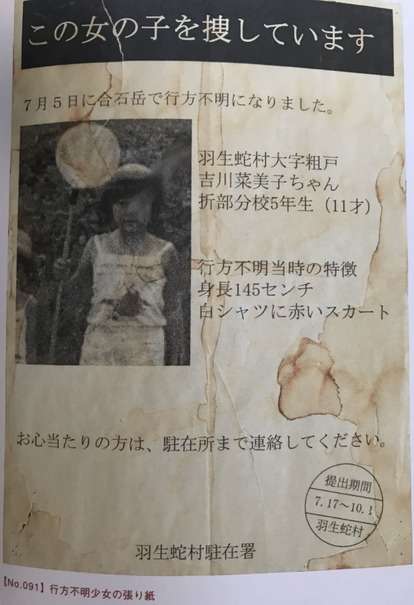 この女の子を捜しています
7月5日に合石岳で行方不明になりました。
羽生蛇村大字粗戸
吉川菜美子ちゃん
折部分校5年生（11才）
行方不明当時の特徴
身長145センチ
白シャツに赤いスカート
お心当たりの方は、駐在所まで連絡してください。
提出期間
7.17～10.1
羽生蛇村
羽生蛇村駐在署
【No.091】行方不明少女の張り紙